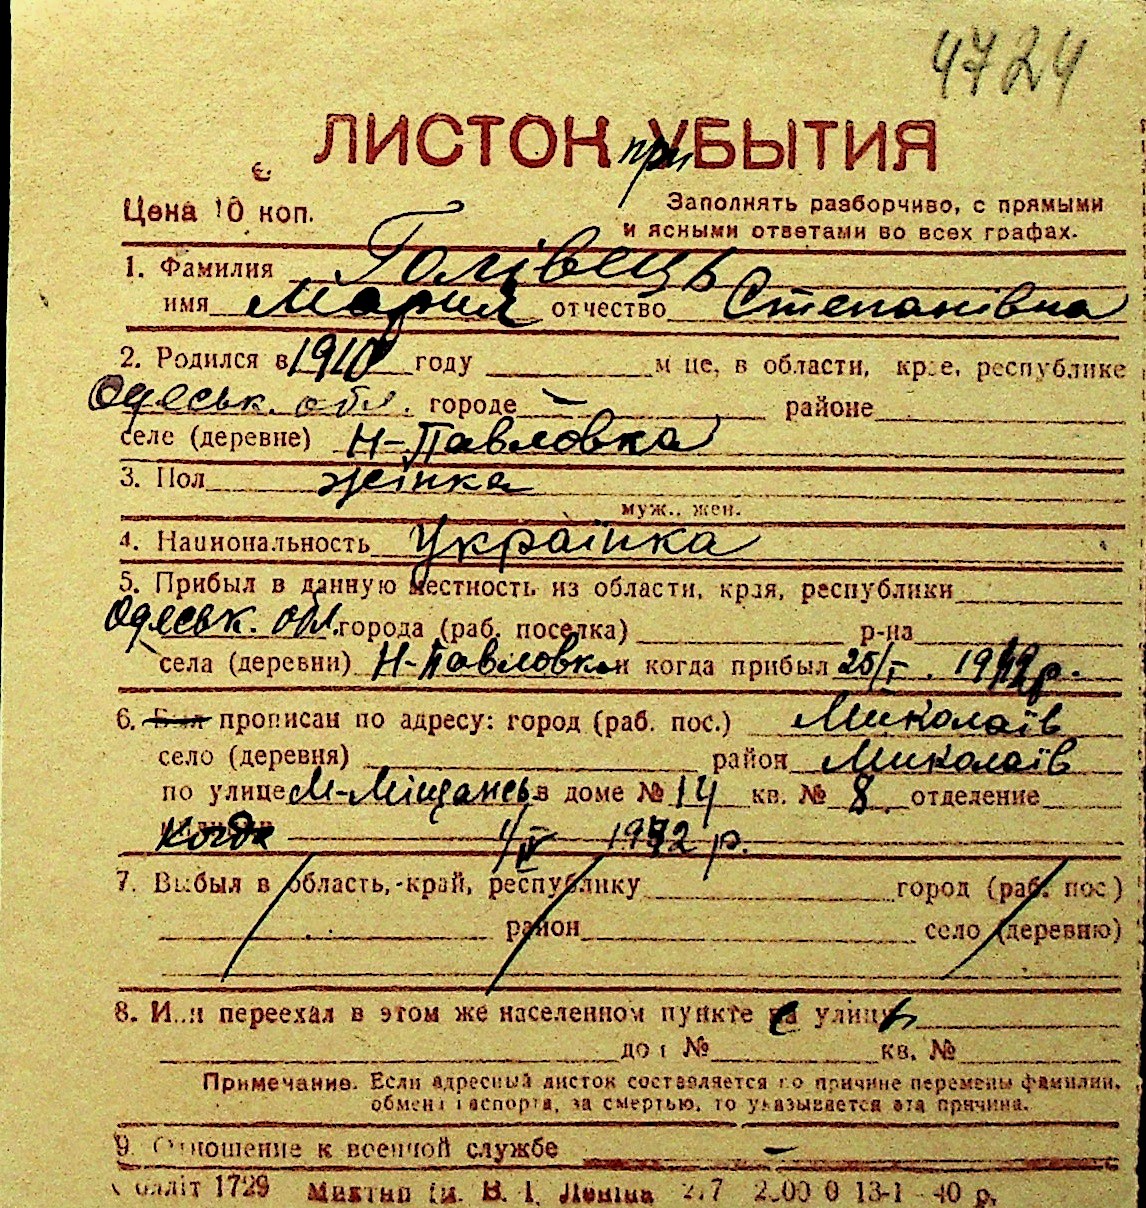 4724
ЛИСТОК при УБЫТИЯ
Цена 10 коп.
Заполнять разборчиво, с прямыми
и ясными ответами во всех графах.
1. Фамилия Голівець
имя Мария отчество Степанівна
2. Родился в 1910 году м це, в области, кр.е, республике
Одеськ. обл. городе — районе
селе (деревне) Н-Павловка
3. Пол жінка
муж., жен.
4. Национальность Українка
5. Прибыл в данную местность из области, края, республики
Одеськ. обл. города (раб. поселка) р-на
села (деревни) Н-Павловки и когда прибыл 25/I. 1942 р.
6. Был прописан по адресу: город (раб. пос.) Миколаїв
село (деревня) район Миколаїв
по улице М-Міщанськ в доме № 14 кв. № 8 отделение
Когда 1/IV 1942 р.
7. Выбыл в область, край, республику город (раб. пос)
район село (деревню)
8. И..и переехал в этом же населенном пункте с улицы
до № кв. №
Примечание. Если адресный листок составляется по причине перемены фамилии,
обмена паспорта, за смертью, то указывается эта причина.
9. Отношение к военной службе —
облліт 1729 Миктип ім. В. І. Леніна 2000 0 13-1 40 р.